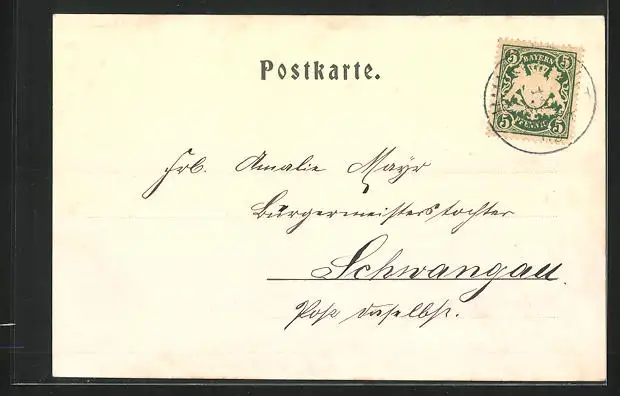 Postkarte.
5 BAYERN 5
5 PFENNIG 5
Frl. Amalie Mayr
Bürgermeisterstochter
Schwangau.
Post daselbst.